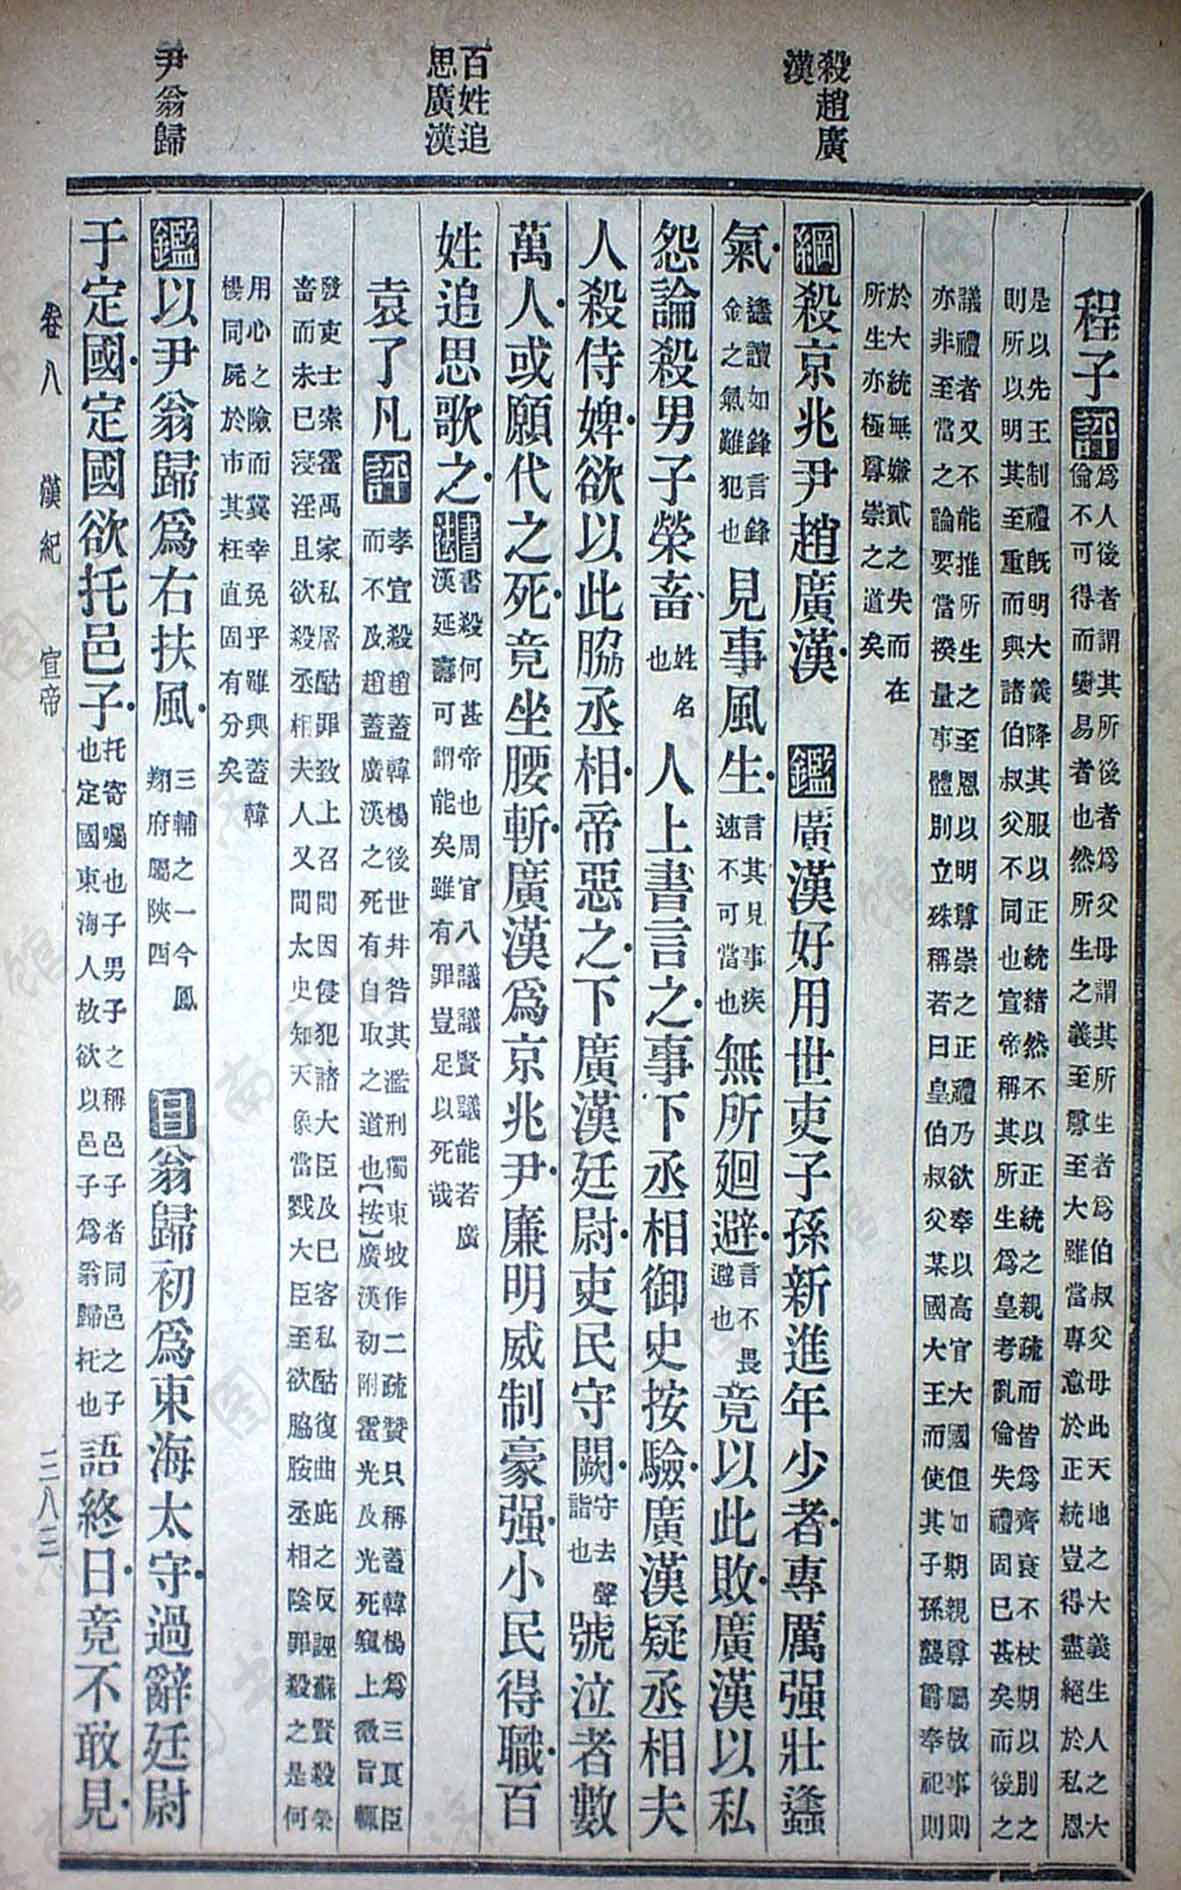 殺趙廣漢
百姓追思廣漢
尹翁歸
程子評爲人後者謂其所後者爲父母謂其所生者爲伯叔父母此天地之大義生人之大
倫不可得而變易者也然所生之義至尊至大雖當專意於正統豈得盡絕於私恩
是以先王制禮旣明大義降其服以正統緒然不以正統之親疏而皆爲齊衰不杖期以別之
則所以明其至重而與諸伯叔父不同也宣帝稱其所生爲皇考亂倫失禮固已甚矣而後之
議禮者又不能推所生之至恩以明尊崇之正禮乃欲奉以高官大國但如期親尊屬故事則
亦非至當之論要當揆量事體別立殊稱若曰皇伯叔父某國大王而使其子孫襲爵奉祀則
於大統無嫌貳之失而在
所生亦極尊崇之道矣
綱殺京兆尹趙廣漢 鑑廣漢好用世吏子孫新進年少者專厲强壯蠭
氣蠭讀如鋒言鋒金之氣難犯也見事風生言其見事疾速不可當也無所廻避言不畏避也竟以此敗廣漢以私
怨論殺男子榮畜姓名也人上書言之事下丞相御史按驗廣漢疑丞相夫
人殺侍婢欲以此脇丞相帝惡之下廣漢廷尉吏民守闕守去聲詣也號泣者數
萬人或願代之死竟坐腰斬廣漢爲京兆尹廉明威制豪强小民得職百
姓追思歌之書法書殺何甚帝也周官八議議賢議能若廣漢延壽可謂能矣雖有罪豈足以死哉
袁了凡評孝宣殺趙蓋韓楊後世并咎其濫刑獨東坡作二疏贊只稱蓋韓楊爲三良臣
而不及趙蓋廣漢之死有自取之道也【按】廣漢初附霍光及光死窺上微旨輒
發吏士索霍禹家私屠酤罪致上召問因侵犯諸大臣及已客私酤復曲庇之反誣蘇賢殺榮
畜而未已寖淫且欲殺丞相夫人又問太史知天象當戮大臣至欲脇胺丞相陰罪殺之是何
用心之險而冀幸免乎雖與蓋韓
楊同屍於市其枉直固有分矣
鑑以尹翁歸爲右扶風三輔之一今鳳翔府屬陝西 目翁歸初爲東海太守過辭廷尉
于定國定國欲托邑子托寄囑也子男子之稱邑子者同邑之子也定國東海人故欲以邑子爲翁歸托也語終日竟不敢見
卷八 漢紀 宣帝 三八三